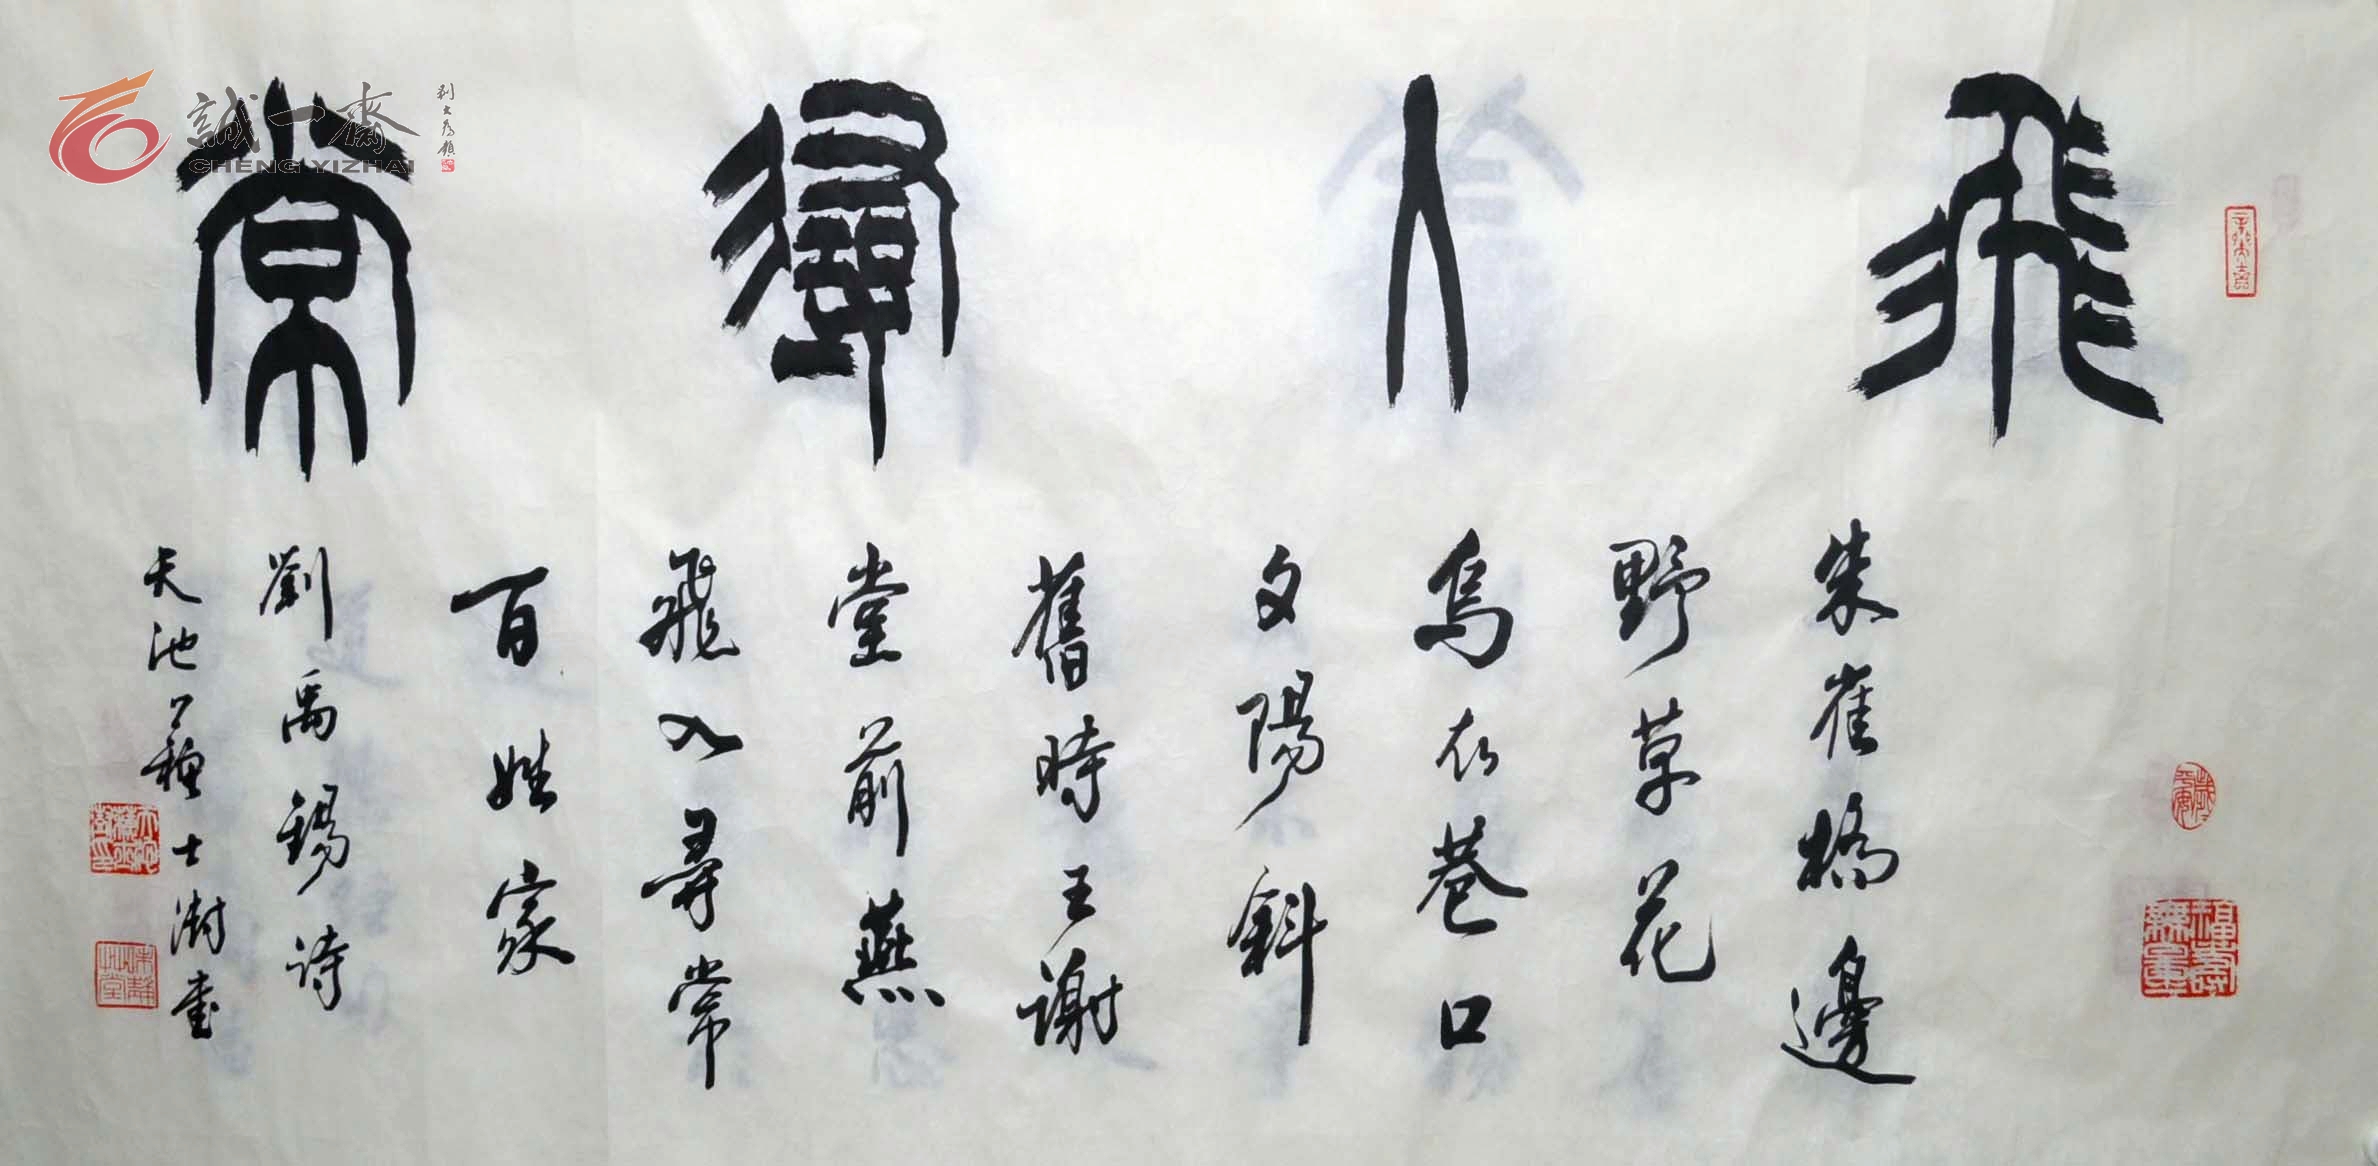 飛入尋常
朱雀橋邊
野草花
烏衣巷口
夕陽斜
舊時王謝
堂前燕
飛入尋常
百姓家
劉禹錫詩
天池蘇士澍書
福壽無量
誠一齋
CHENG YIZHAI
劉大為題